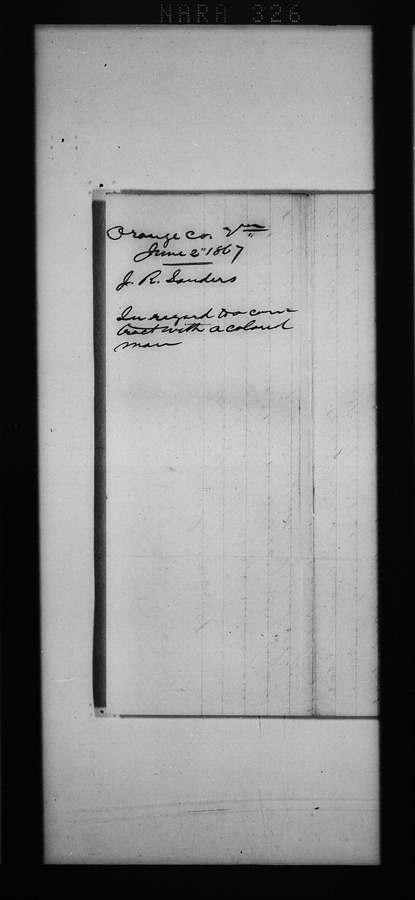 NARA 326
Orange Co.
June 2" 1867
J. R. Sanders
In regard to a con
tract with a colord
man